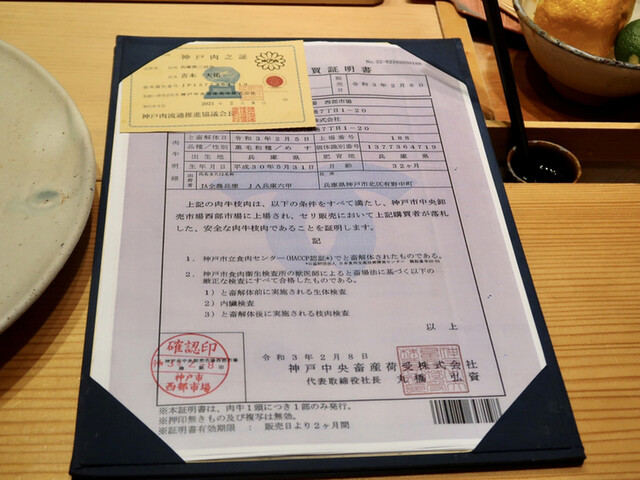 神戸肉之証
吉本 大祐
2021年2月8日
神戸肉流通推進協議会
買証明書
令和3年2月8日
西部市場
7丁目1-20
株式会社
7丁目1-20
肉牛明細
と畜解体日 令和3年2月5日 上場番号 188
品種/性別 黒毛和種/めす 個体識別番号 1377364719
出生地 兵庫県 肥育地 兵庫県
生年月日 平成30年5月31日 月齢 32ヶ月
JA全農兵庫 JA兵庫六甲 兵庫県神戸市北区有野中町
上記の肉牛枝肉は、以下の条件をすべて満たし、神戸市中央卸
売市場西部市場に上場され、セリ販売において上記購買者が落札
した、安全な肉牛枝肉であることを証明します。
記
1. 神戸市立食肉センター(HACCP認証*)でと畜解体されたものである。
2. 神戸市食肉衛生検査所の獣医師によると畜場法に基づく以下の
厳正な検査にすべて合格したものである。
1)と畜解体前に実施される生体検査
2)内臓検査
3)と畜解体後に実施される枝肉検査
以上
令和3年2月8日
神戸中央畜産荷受株式会社
代表取締役社長 丸橋 弘資
確認印
神戸市
西部市場
※本証明書は、肉牛1頭につき1部のみ発行。
※押印無きもの及び複写は無効。
※証明書有効期限 : 販売日より2ヶ月間